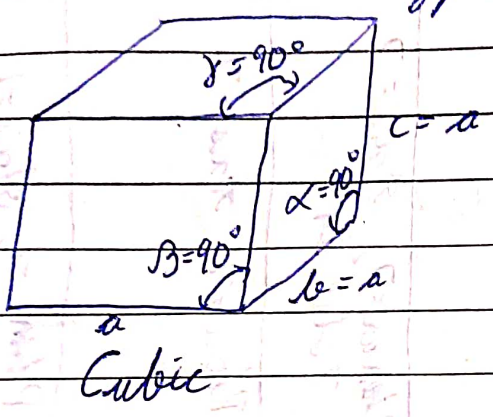 γ=90°
c=a
α=90°
β=90°
b=a
a
Cubic